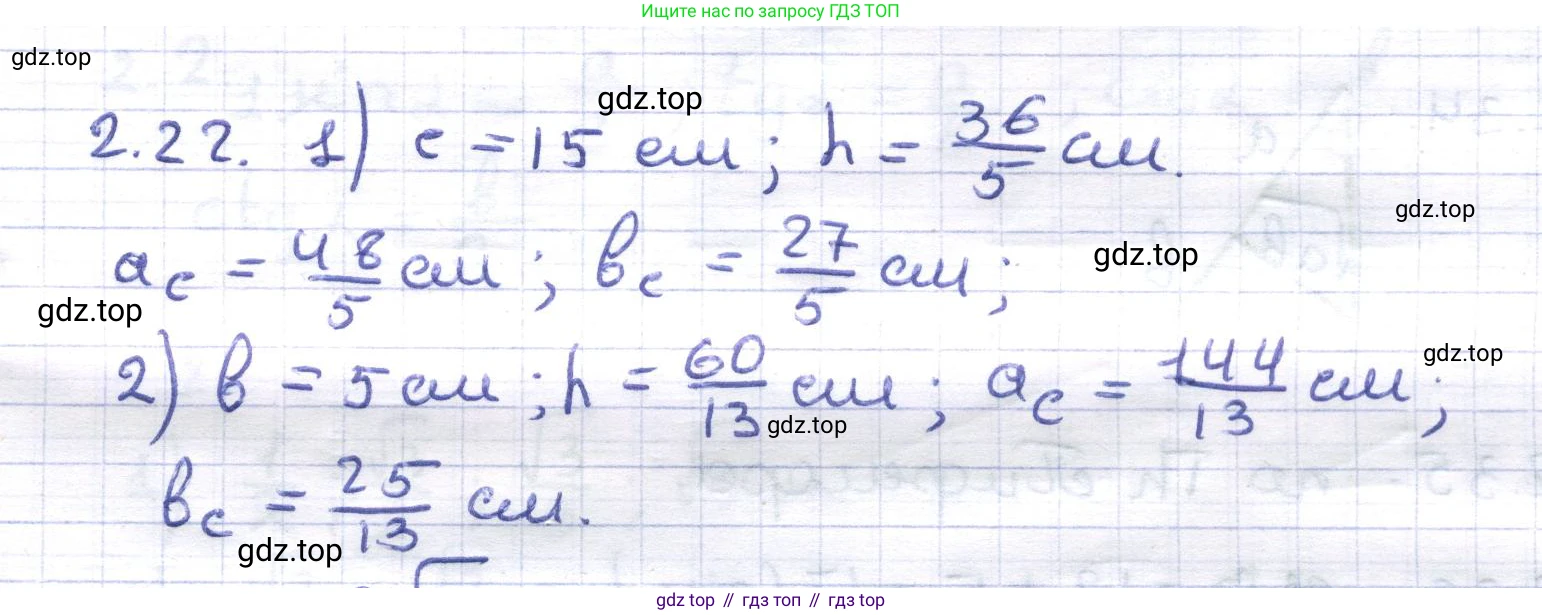 Ищите нас по запросу ГДЗ ТОП
gdz.top
gdz.top
2.22. 1) c = 15 см; h = 36/5 см.
gdz.top
a_c = 48/5 см; b_c = 27/5 см;
gdz.top
gdz.top
2) b = 5 см; h = 60/13 см; a_c = 144/13 см;
gdz.top
gdz.top
b_c = 25/13 см.
gdz.top
gdz top // гдз топ // гдз top